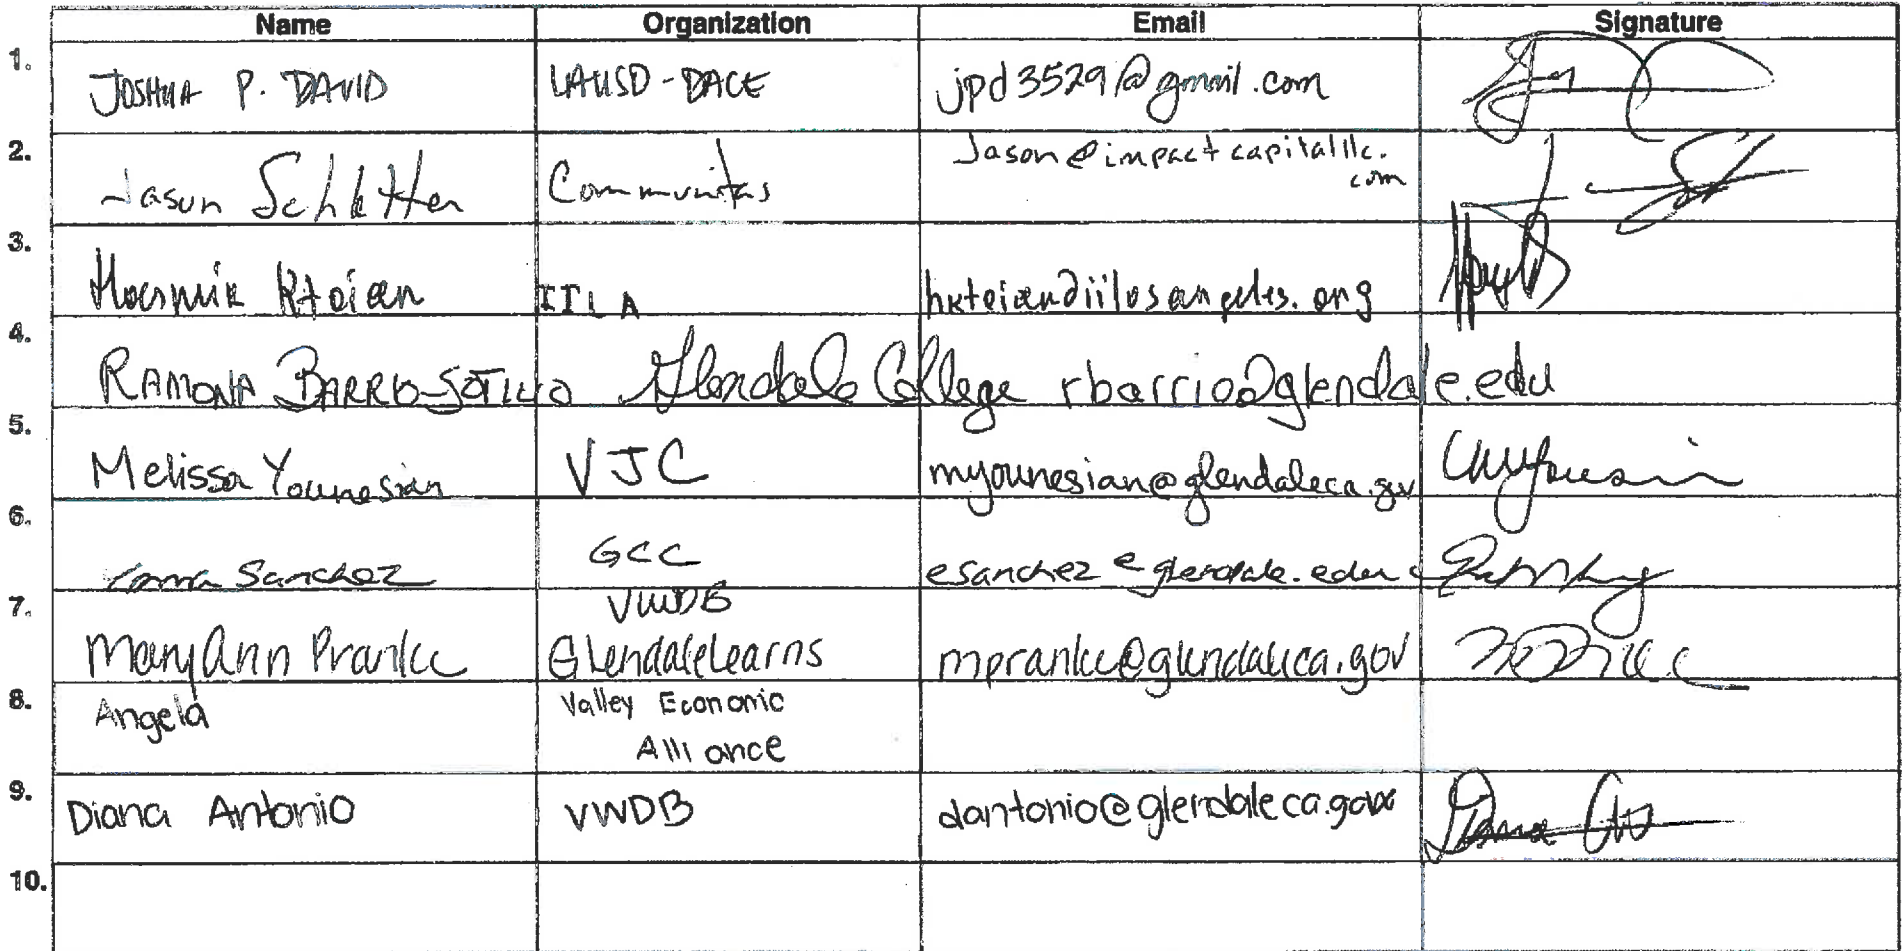 Name Organization Email Signature
1. JOSHUA P. DAVID LAUSD-DACE jpd3529@gmail.com
2. Jason Communitas Jason@impactcapitalllc.
com
3. Hasmik Ktoian IILA hktoian@iilosangeles.org
4. RAMONA BARRIO-SOTILLO Glendale College rbarrio@glendale.edu
5. Melissa Younesian VJC myounesian@glendaleca.gov
6. Sanchez GCC esanchez@glendale.edu
VWDB
7. MaryAnn Pranke GlendaleLearns mpranke@glendaleca.gov
8. Angela Valley Economic
Alliance
9. Diana Antonio VWDB dantonio@glendaleca.gov
10.